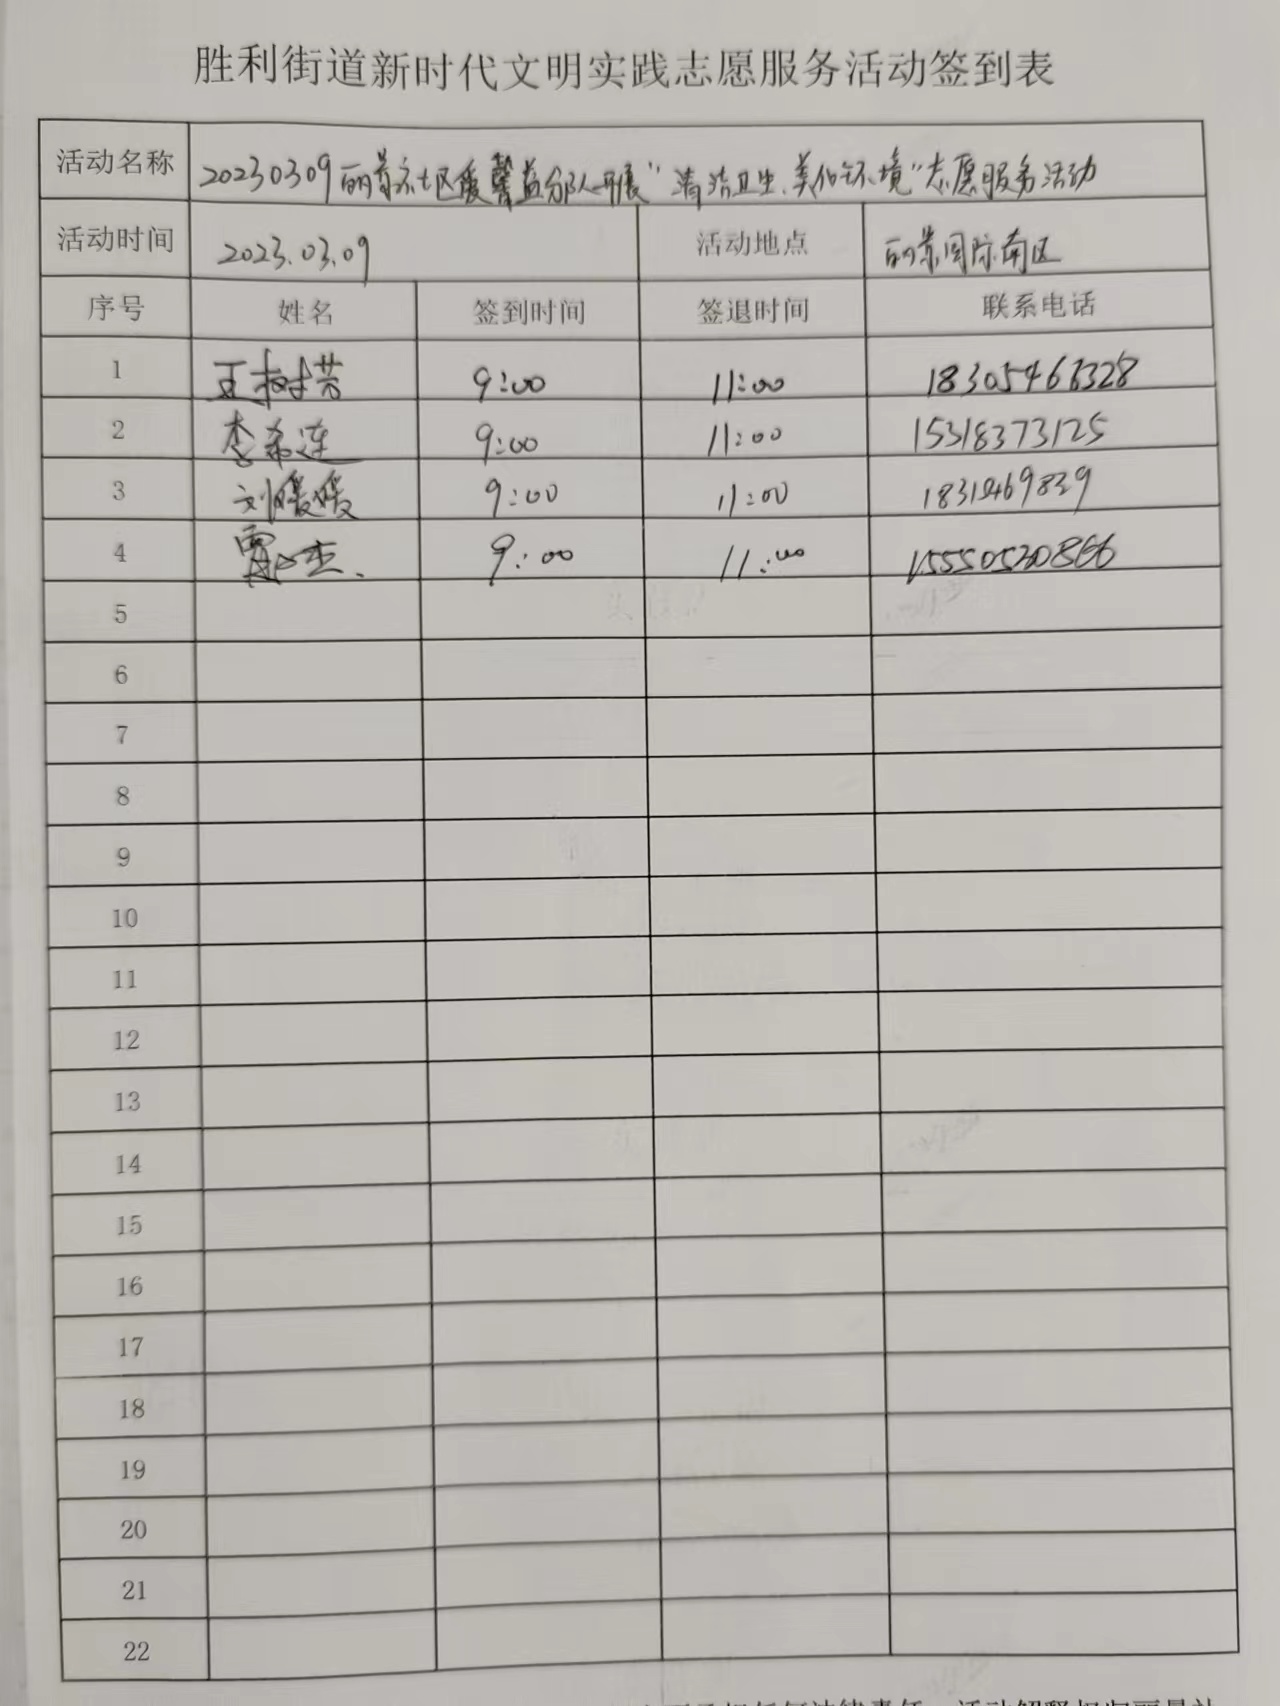 胜利街道新时代文明实践志愿服务活动签到表
活动名称 20230309丽景社区暖馨益分队开展“清洁卫生、美化环境”志愿服务活动
活动时间 2023.03.09 活动地点 丽景国际南区
序号 姓名 签到时间 签退时间 联系电话
1 王树芳 9:00 11:00 18305466328
2 李希连 9:00 11:00 15318373125
3 刘媛媛 9:00 11:00
4 9:00 11:00 15550520866
5
6
7
8
9
10
11
12
13
14
15
16
17
18
19
20
21
22